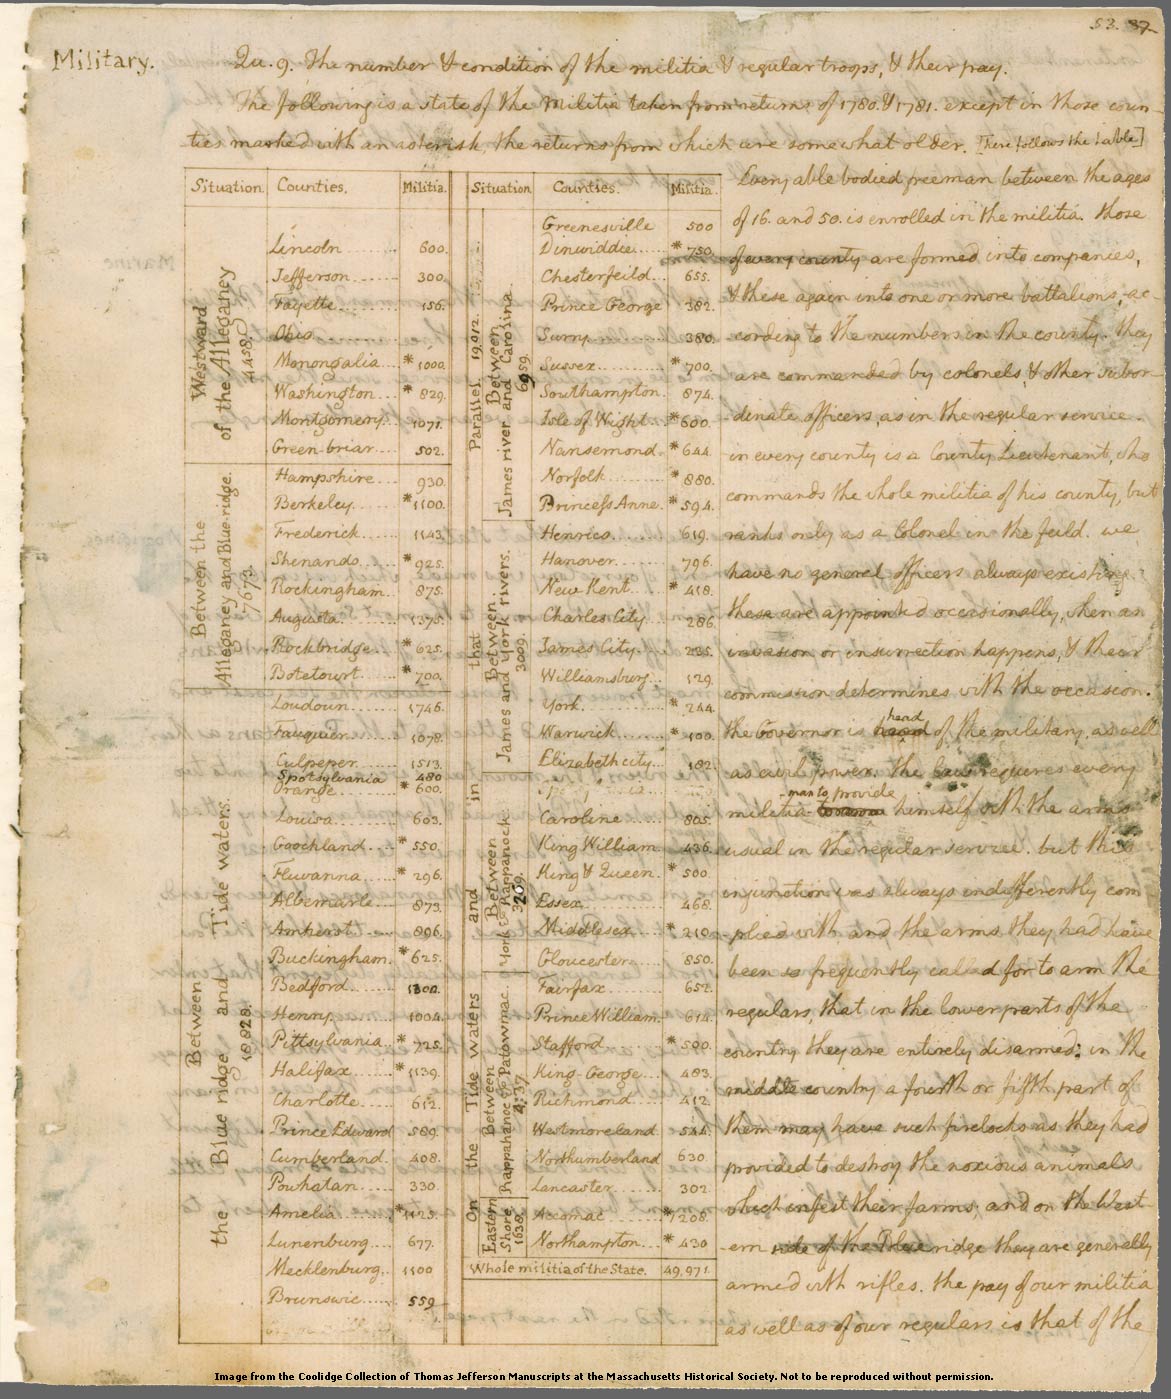 53. 37
Military.
Qu. 9. The number & condition of the militia & regular troops, & their pay.
The following is a state of the Militia taken from returns of 1780. & 1781. except in those coun-
ties marked with an asterisk, the returns from which are somewhat older. [Here follows the table]
Situation Counties. Militia.
Westward of the Alleganey 4458.
Lincoln 600.
Jefferson 300.
Fayette 156.
Ohio
Monongalia *1000.
Washington *829.
Montgomery 1071.
Green briar 502.
Between the Alleganey and Blue-ridge. 7673.
Hampshire 930.
Berkeley *1100.
Frederick 1143.
Shenando *925.
Rockingham 875.
Augusta 1375.
Rockbridge *625.
Botetourt *700.
Between the Blue ridge and Tide waters. 18828.
Loudoun 1746.
Fauquier 1078.
Culpeper 1513.
Spotsylvania 480
Orange *600.
Louisa 603.
Goochland *550.
Fluvanna *296.
Albemarle 873.
Amherst 896.
Buckingham *625.
Bedford 1300.
Henry 1004.
Pittsylvania *725.
Halifax *1139.
Charlotte 612.
Prince Edward 589.
Cumberland 408.
Powhatan 330.
Amelia *1125.
Lunenburg 677.
Mecklenburg 1100
Brunswic 559
Situation Counties. Militia.
On the Tide waters and in that Parallel. 19,012.
Between James river and Carolina. 6959.
Greenesville 500
Dinwiddie *750.
Chesterfeild 655.
Prince George 382.
Surry 380.
Sussex *700.
Southampton 874.
Isle of Wight *600.
Nansemond *644.
Norfolk *880.
Princess Anne *594.
Between James and York rivers. 3009.
Henrico 619.
Hanover 796.
New Kent *418.
Charles City 286.
James City 235.
Williamsburg 129.
York *244.
Warwick *100.
Elizabeth city 182.
Between York & Rappanock. 3269.
Caroline 805.
King William 436.
King & Queen *500.
Essex 468.
Middlesex *210.
Gloucester 850.
Between Rappahanoc & Patowmac. 4137
Fairfax 652.
Prince William 614.
Stafford *500.
King-George 483.
Richmond 412.
Westmoreland 544.
Northumberland 630.
Lancaster 302.
Eastern Shore. 1638.
Accomac *1208.
Northampton *430
Whole militia of the State. 49,971.
Every able bodied freeman between the ages
of 16. and 50. is enrolled in the militia. those
of every county are formed into companies,
& these again into one or more battalions, ac-
cording to the numbers in the county. they
are commanded by colonels, & other subor
-dinate officers, as in the regular service.
in every county is a County Lieutenant, who
commands the whole militia of his county, but
ranks only as a Colonel in the feild. we
have no general officers always existing.
these are appointed occasionally, when an
invasion or insurrection happens, & their
commission determines with the occasion.
the Governor is head of the military, as well
as civil power. the law requires every
militia-man to provide himself with the arms
usual in the regular service. but this
injunction was always indifferently com
-plied with, and the arms they had have
been so frequently called for to arm the
regulars, that in the lower parts of the
country they are entirely disarmed. in the
middle country a fourth or fifth part of
them may have such firelocks as they had
provided to destroy the noxious animals
which infest their farms; and on the West-
-ern side of the Blue ridge they are generally
armed with rifles. the pay of our militia
as well as of our regulars is that of the
Image from the Coolidge Collection of Thomas Jefferson Manuscripts at the Massachusetts Historical Society. Not to be reproduced without permission.